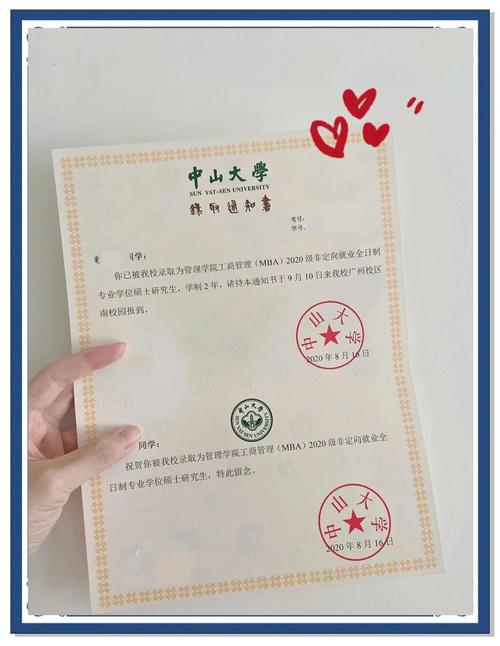 中山大學
SUN YAT-SEN UNIVERSITY
錄取通知書
考号：
学号：
同学：
你已被我校录取为管理学院工商管理（MBA）2020 级非定向就业全日制
专业学位硕士研究生，学制 2 年，请持本通知书于 9 月 10 日来我校广州校区
南校园报到。
中山大学
2020 年 8 月 16 日
中山大學
SUN YAT-SEN UNIVERSITY
同学：
祝贺你被我校录取为管理学院工商管理（MBA）2020 级非定向就业全
日制专业学位硕士研究生，特此留念。
中山大学
2020 年 8 月 16 日